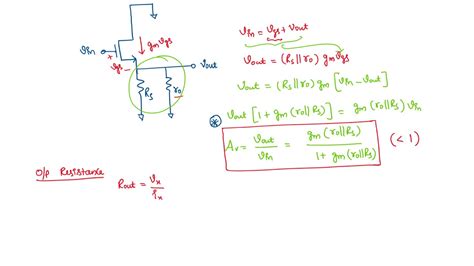 Vin
+
Vgs -
gm Vgs
Vout
Rs
ro
Vin = Vgs + Vout
Vout = (Rs || ro) gm Vgs
Vout = (Rs || ro) gm [Vin - Vout]
Vout [1 + gm (ro || Rs)] = gm (ro || Rs) Vin
* Av = Vout / Vin = gm (ro || Rs) / 1 + gm (ro || Rs) (< 1)
O/p Resistance
Rout = Vx / ix